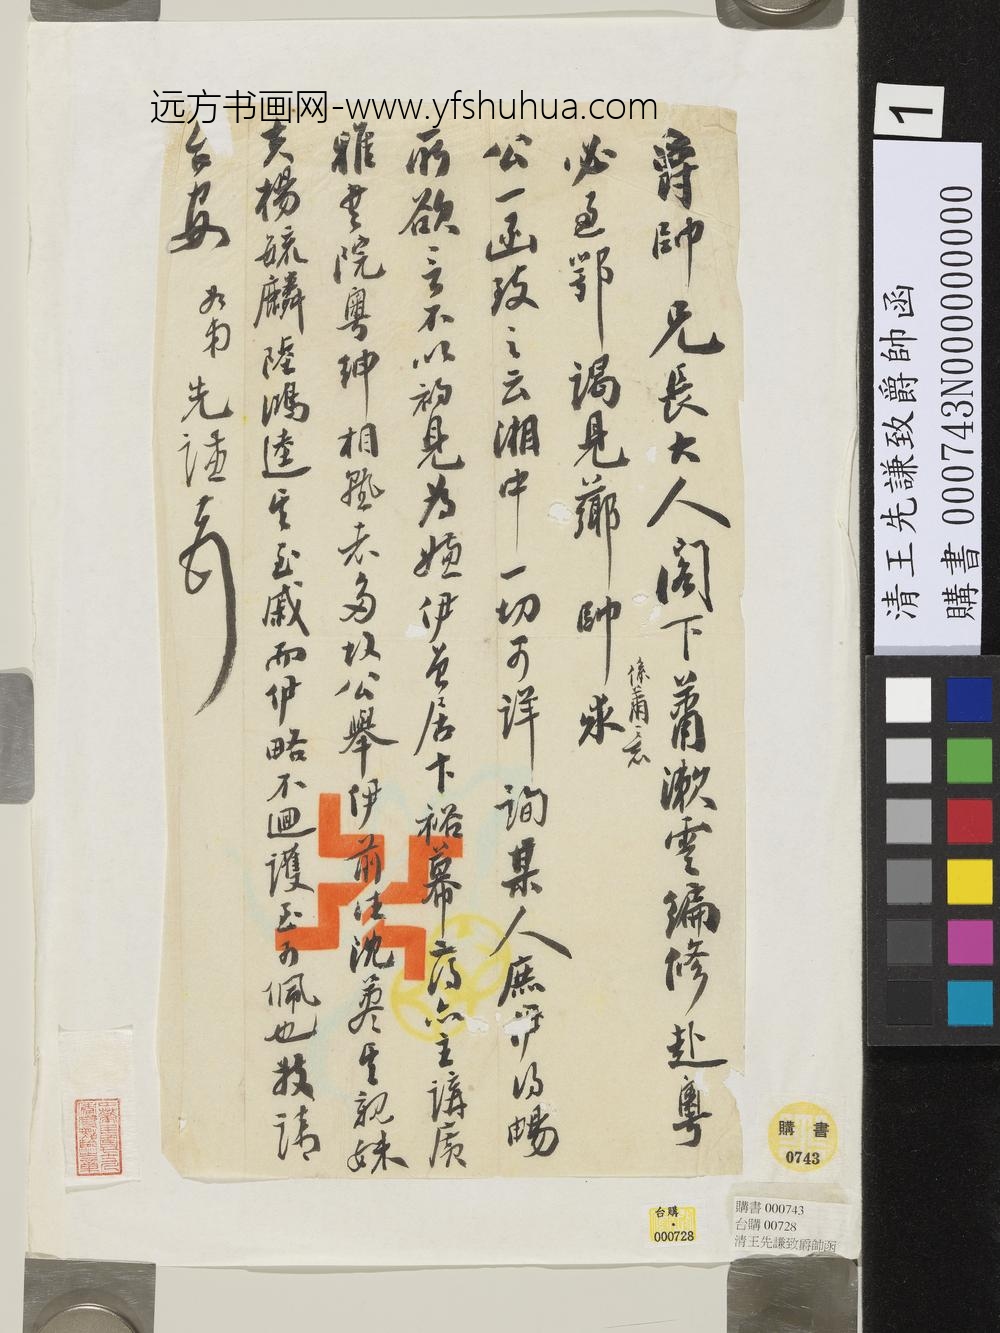 远方书画网-www.yfshuhua.com
爵帥兄長大人閣下蕭漱雲編修赴粵
必過鄂謁見薌帥求
係蕭之意
公一函致之云湘中一切可詳詢某人庶伊得暢
所欲言不以初見為嫌伊曾居卞裕幕府亦主講廣
雅書院粵紳相熟者多故公舉伊前往沈藎其親妹
夫楊毓麟陸鴻逵其至戚而伊略不迴護至可佩也敬請
台安
弟先謙
1
清王先謙致爵帥函
購書 000743N000000000
購書
0743
台購
000728
購書 000743
台購 00728
清王先謙致爵帥函